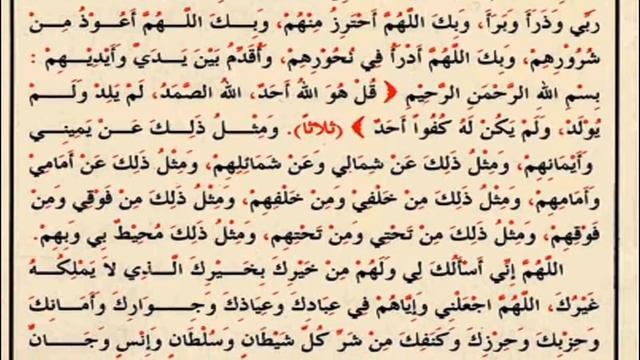 رَبِّي وَذَرَأَ وَبَرَأَ، وَبِكَ اللَّهُمَّ أَحْتَرِزُ مِنْهُمْ، وَبِكَ اللَّهُمَّ أَعُوذُ مِنْ
شُرُورِهِمْ، وَبِكَ اللَّهُمَّ أَدْرَأُ فِي نُحُورِهِمْ، وَأُقَدِّمُ بَيْنَ يَدَيَّ وَأَيْدِيهِمْ :
بِسْمِ اللهِ الرَّحْمَنِ الرَّحِيمِ ﴿ قُلْ هُوَ اللهُ أَحَدٌ، اللهُ الصَّمَدُ، لَمْ يَلِدْ وَلَمْ
يُولَدْ، وَلَمْ يَكُنْ لَهُ كُفُواً أَحَدٌ ﴾ (ثلاثاً). وَمِثْلُ ذَلِكَ عَنْ يَمِينِي
وَأَيْمَانِهِمْ، وَمِثْلُ ذَلِكَ عَنْ شِمَالِي وَعَنْ شَمَائِلِهِمْ، وَمِثْلُ ذَلِكَ عَنْ أَمَامِي
وَأَمَامِهِمْ، وَمِثْلُ ذَلِكَ مِنْ خَلْفِي وَمِنْ خَلْفِهِمْ، وَمِثْلُ ذَلِكَ مِنْ فَوْقِي وَمِنْ
فَوْقِهِمْ، وَمِثْلُ ذَلِكَ مِنْ تَحْتِي وَمِنْ تَحْتِهِمْ، وَمِثْلُ ذَلِكَ مُحِيطٌ بِي وَبِهِمْ.
اللَّهُمَّ إِنِّي أَسْأَلُكَ لِي وَلَهُمْ مِنْ خَيْرِكَ بِخَيْرِكَ الَّذِي لَا يَمْلِكُهُ
غَيْرُكَ، اللَّهُمَّ اجْعَلْنِي وَإِيَّاهُمْ فِي عِبَادِكَ وَعِيَاذِكَ وَجِوَارِكَ وَأَمَانِكَ
وَحِزْبِكَ وَحِرْزِكَ وَكَنَفِكَ مِنْ شَرِّ كُلِّ شَيْطَانٍ وَسُلْطَانٍ وَإِنْسٍ وَجَانٍّ